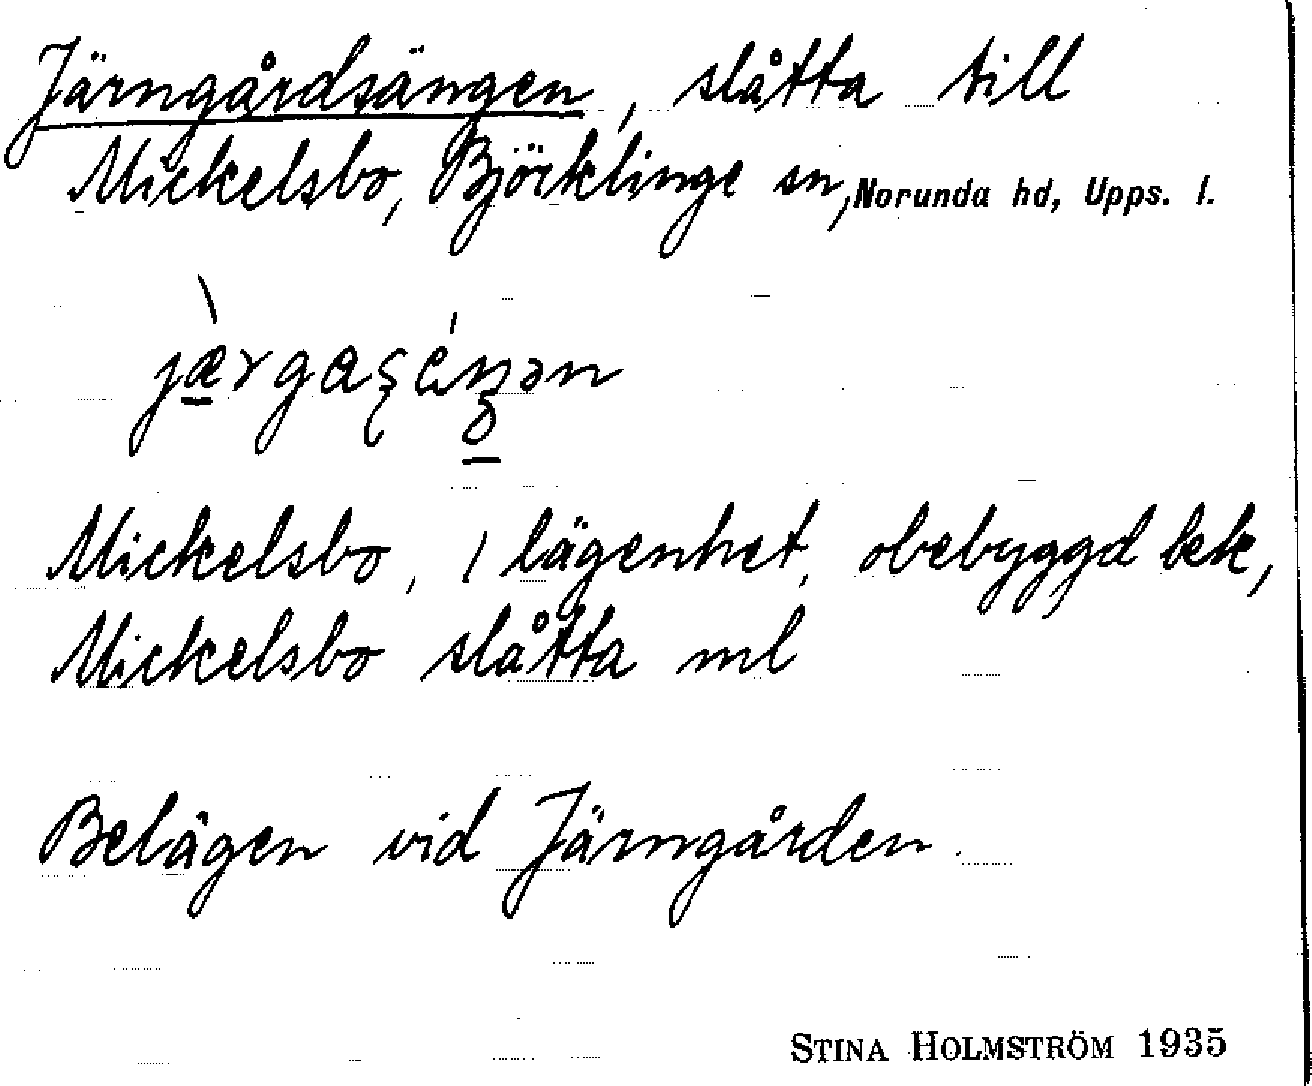 Järngårdsängen, slåtta till
Mickelsbo, Björklinge sn, Norunda hd, Upps. l.
Mickelsbo, 1 lägenhet, obebyggd kek,
Mickelsbo slåtta ml
Belägen vid Järngården.
STINA HOLMSTRÖM 1935